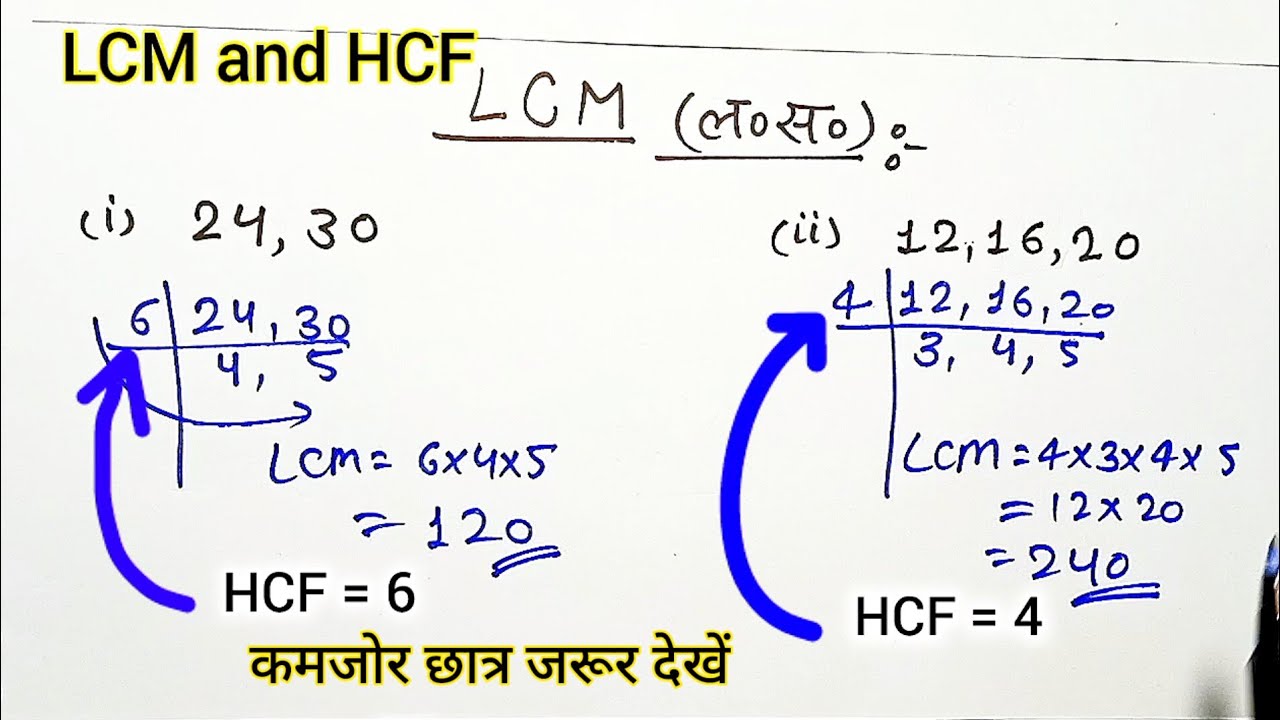 LCM and HCF
LCM (ल०स०) :-
(i) 24, 30
6 24, 30
4, 5
LCM = 6×4×5
= 120
HCF = 6
(ii) 12, 16, 20
4 12, 16, 20
3, 4, 5
LCM = 4×3×4×5
= 12×20
= 240
HCF = 4
कमजोर छात्र जरूर देखें